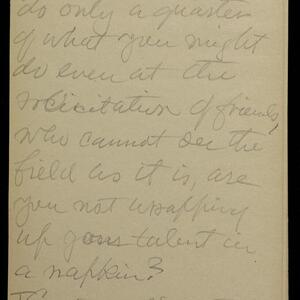 do only a quarter
of what you might
do even at the
solicitation of friends,
who cannot see the
field as it is, are
you not wrapping
up your talent in
a napkin?